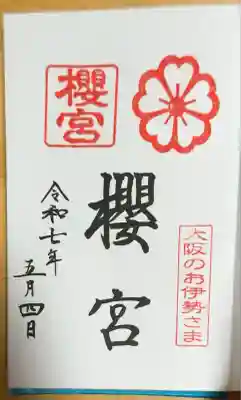 櫻宮
櫻宮
大阪のお伊勢さま
令和七年
五月四日